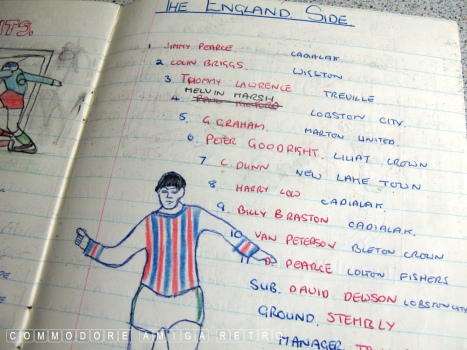 THE ENGLAND SIDE
TS.
1. JIMMY PEARCE CADIALAK
2. COLIN BRIGGS WIGSTON
3. THOMMY LAWRENCE TREVILLE
MELVIN MARSH
4. LOBSTON CITY.
5. G. GRAHAM. MARTON UNITED.
6. PETER GOODRIGHT. LILIAT CROWN
7. C. DUNN NEW LAKE TOWN
8. HARRY LOW CADIALAK.
9. BILLY BRASTON CADIALAK.
10. VAN PETERSON BLETON CROWN
11 D. PEARCE COLTON FISHERS
SUB. DAVID DEWSON LOBSTON CITY
GROUND. STEMBLY
MANAGER.
COMMODORE AMIGA RETRO